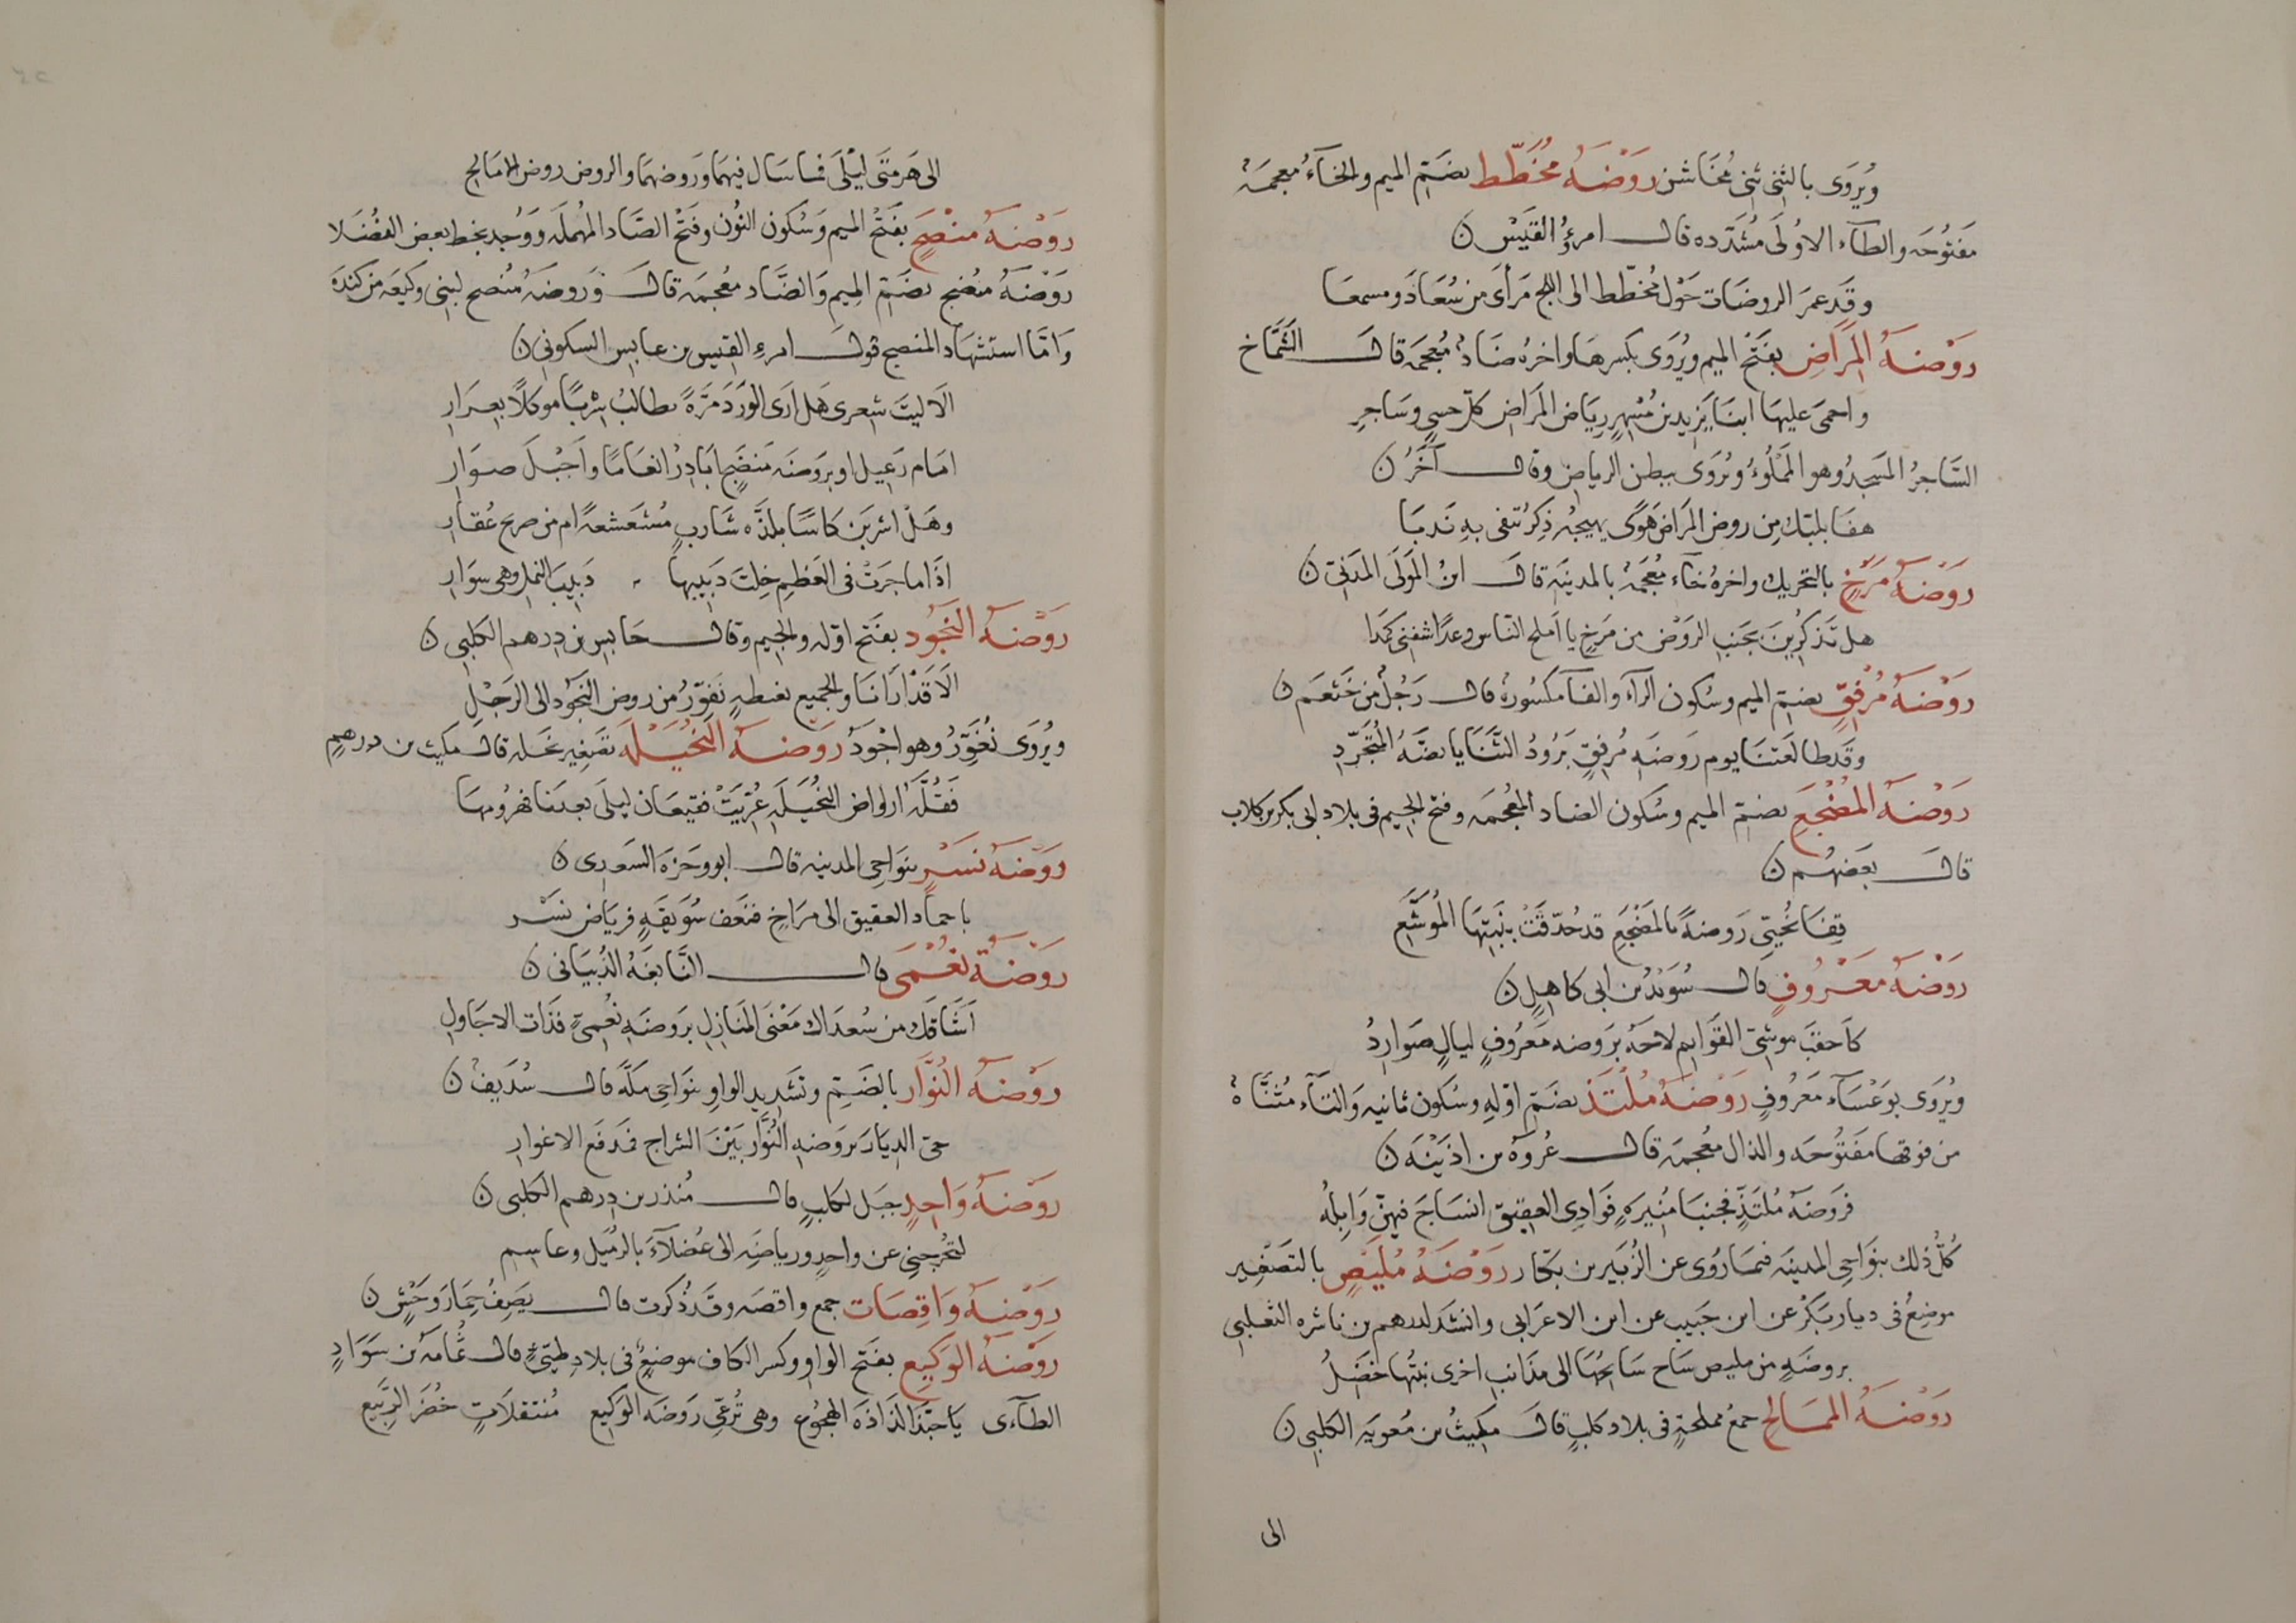 ويُروَى بالثنى ثنى مُخاشن رَوْضَةُ مُخَطّط بضَمّ الميم والخآءُ معجمَة
مَفتُوحَه والطآء الاوُلَى مُشَدّده قال امرؤُ القَيْسِ ن
وقَد عمَر الروضَات حَوْل مُخطّط الى اللج مَرأىً من سُعَادَ ومسمعَا
رَوْضَةُ المَرَاضِ بفَتْح الميم ويُروَى بكسرهَا واخرهُ ضَادٌ مُعجمَه قال الشَّمَّاخ
واحمى عليهَا ابنَا يَزيد بن مُسْهِرٍ رِيَاض المَرَاضِ كلّ حسىٍ وسَاجرِ
السَّاجرُ المَسجدُ وهو المَمْلُوءُ ويُروَى ببطن الرياض وقال آخَرُ ن
هفَا بلبّك مِن روض المَرَاض هَوىً يهيجهُ ذِكرٌ تبقى بهِ نَدبَا
رَوْضَةُ مَرَخٍ بالتحريك واخرهُ خآء مُعجَمَة بالمدينَة قال ابنُ المَولَى المدَنىّ ن
هل تَذكرِينَ بجَنبِ الرَوْض من مَرَخٍ يا اَملح النّاس وعدًا شفنى كَمَدا
رَوْضَةُ مُرْفِقٍ بضمّ الميم وسُكون الرآء والفآ مكسُورة قال رَجُلٌ من خَثعَم ن
وقَد طالَعَتنَا يوم رَوضَهِ مُرفِقٍ بَرُودُ الثَّنَايا بضَّةُ المُتَجَرّدِ
رَوْضَةُ المُضْجَعِ بضمّ الميم وسُكون الضاد المعجمَه وفتح الجيم فى بلاد ابى بكر بن كلاب
قال بعَضهُم ن
قِفَا نُحَيّى رَوضةً بالمَضْجَعِ قد حُدّقَتْ بنَبتِهَا المُوَشَّعِ
رَوْضَةُ مَعْرُوفٍ قال سُوَيْدُ بن ابى كاهِلٍ ن
كاَحقبَ موشىّ القَوَايم لاحَهُ بَروضه مَعرُوفٍ ليالٍ صَوَارِدُ
ويُروَى بوَعْسَآء مَعرُوفٍ رَوْضَةُ مُلْتَذّ بضَمّ اوّلهِ وسُكون ثانيه وَالتآء مُثنَّاة
من فوقها مَفتُوحَه والذال معُجمَه قال عُروَة بن اذَيْنَه ن
فرَوضَهُ مُلتَذٍّ فجنبَا مُنِيرَهٍ فَوَادِى العقِيق انسَاجَ فيهنّ وَابِلُه
كُلّ ذلك بنَوَاحِى المدينَه فيمَا رَوى عن الزُبَير بن بكّار رَوْضَةُ مُلَيْصٍ بالتصَغير
موضعٌ فى ديار بَكْر عن ابن حَبيب عن ابن الاعَرَابى وانشَد لدرهم بن ناشره الثعلبى
بروضَهِ من مليص سَاح سَائحُهَا الى مذَانب اخرى نبتُها خضَلُ
رَوْضَةُ الممَالِحِ جمعُ مملحةٍ فى بلاد كلبٍ قال مكيثُ بن مُعويَه الكلبىّ ن
الى
الى هَرمتَى ليْلَى فما سَال فيهمَا وَرَوضهمَا والروض روض الممَالحِ
رَوْضَةُ مَنْصَحٍ بفَتْح الميم وَسُكون النُون وفَتْح الصَاد المُهملَه وَوُجد بخط بعض الفُضَلا
رَوْضَةُ منُضج بضَمّ المِيم وَالضَّاد معُجمَه قال وَرَوضَهُ مُنصح لبنى وكيعَه من كندَة
وَامّا استشهَاد المنصح قول امرءِ القيس بن عابسٍ السكونى ن
الَا ليتَ شِعرى هَل ارَى الوَرْدَ مَرّةً يطالبُ سْربًا موكلًا بعِرَارِ
امَام رَعِيل او برَوضَه مَنضَحٍ ابَادِرُ انعَامًا وَاَجْبلَ صوَارِ
وهَلْ اشربَن كاسًا بلذّه شَاربٍ مُشَعشعةً ام من صرح عُقَارِ
اذَا ما جرَتْ فى العَظمِ خِلتَ دَبيبهَا دَبِيبَ النمل وهى سوَارِ
رَوْضَةُ النّجُودِ بفَتح اوّله والجيم وقال حَابِس بن دِرهم الكلبى ن
الَا قَدْ ارَانَا والجميع بغبطهٍ نَفوّرُ من روض النَجُود الى الرَجْلِ
ويُروَى نُغَوّرُ وهو اجْودُ رَوْضةُ النُخَيْلَةِ تصَغير نخَله قال مكيث بن درهمٍ
فَقُلّه ارواض النُخَيلَهِ عُرّيَتْ فقيعَان ليلَى بعدَنا فهزُومهَا
رَوْضَةُ نَسْرٍ بنوَاحِى المدينه قال ابو وَجزَه السَعدى ن
باجماد العقيق الى مرَاخٍ فنَعف سُوَيقَةٍ فرِيَاض نَسْر
رَوْضَةُ نُعْمَى قال النَّابغَهُ الذُبيَانى ن
اَشَاقك من سُعدَاك مَغنَى المَنَازلِ بَروضَهِ نُعمىّ فذَات الاجَاولِ
رَوْضَةُ النُوَّار بالضَمّ وتشَديد الواوِ بنوَاحى مكَّه قال سُدَيفٌ ن
حىّ الديَارَ برَوضهِ النُوَّار بَيْنَ السّراج فمَدفَع الاغوارِ
رَوْضَةُ وَاحِدٍ جبَل لكلبٍ قال مُنذر بن دِرهم الكلبى ن
لتخُرجنى عن واحدٍ ورياضِهِ الى عُضلآءَ بالرُمَيل وعاسِم
رَوْضَةُ وَاقِصَات جمع واقصَه وقَد ذُكرت قال يصَِفُ حمَِارَ وَحْشٍ ن
رَوْضَةُ الوَكِيعِ بفَتح الواوِ وكسر الكاف موضعٌ فى بلادِ طيّئٍ قال ثُمَامَه بن سَوَادٍ
الطآءى يَا حبّذَا لذَاذَه الهجوُع وهى تُرعّى رَوضَه الوَكيعِ مُنتقلَاتٍ خُضَرَ الرَّبيعِ